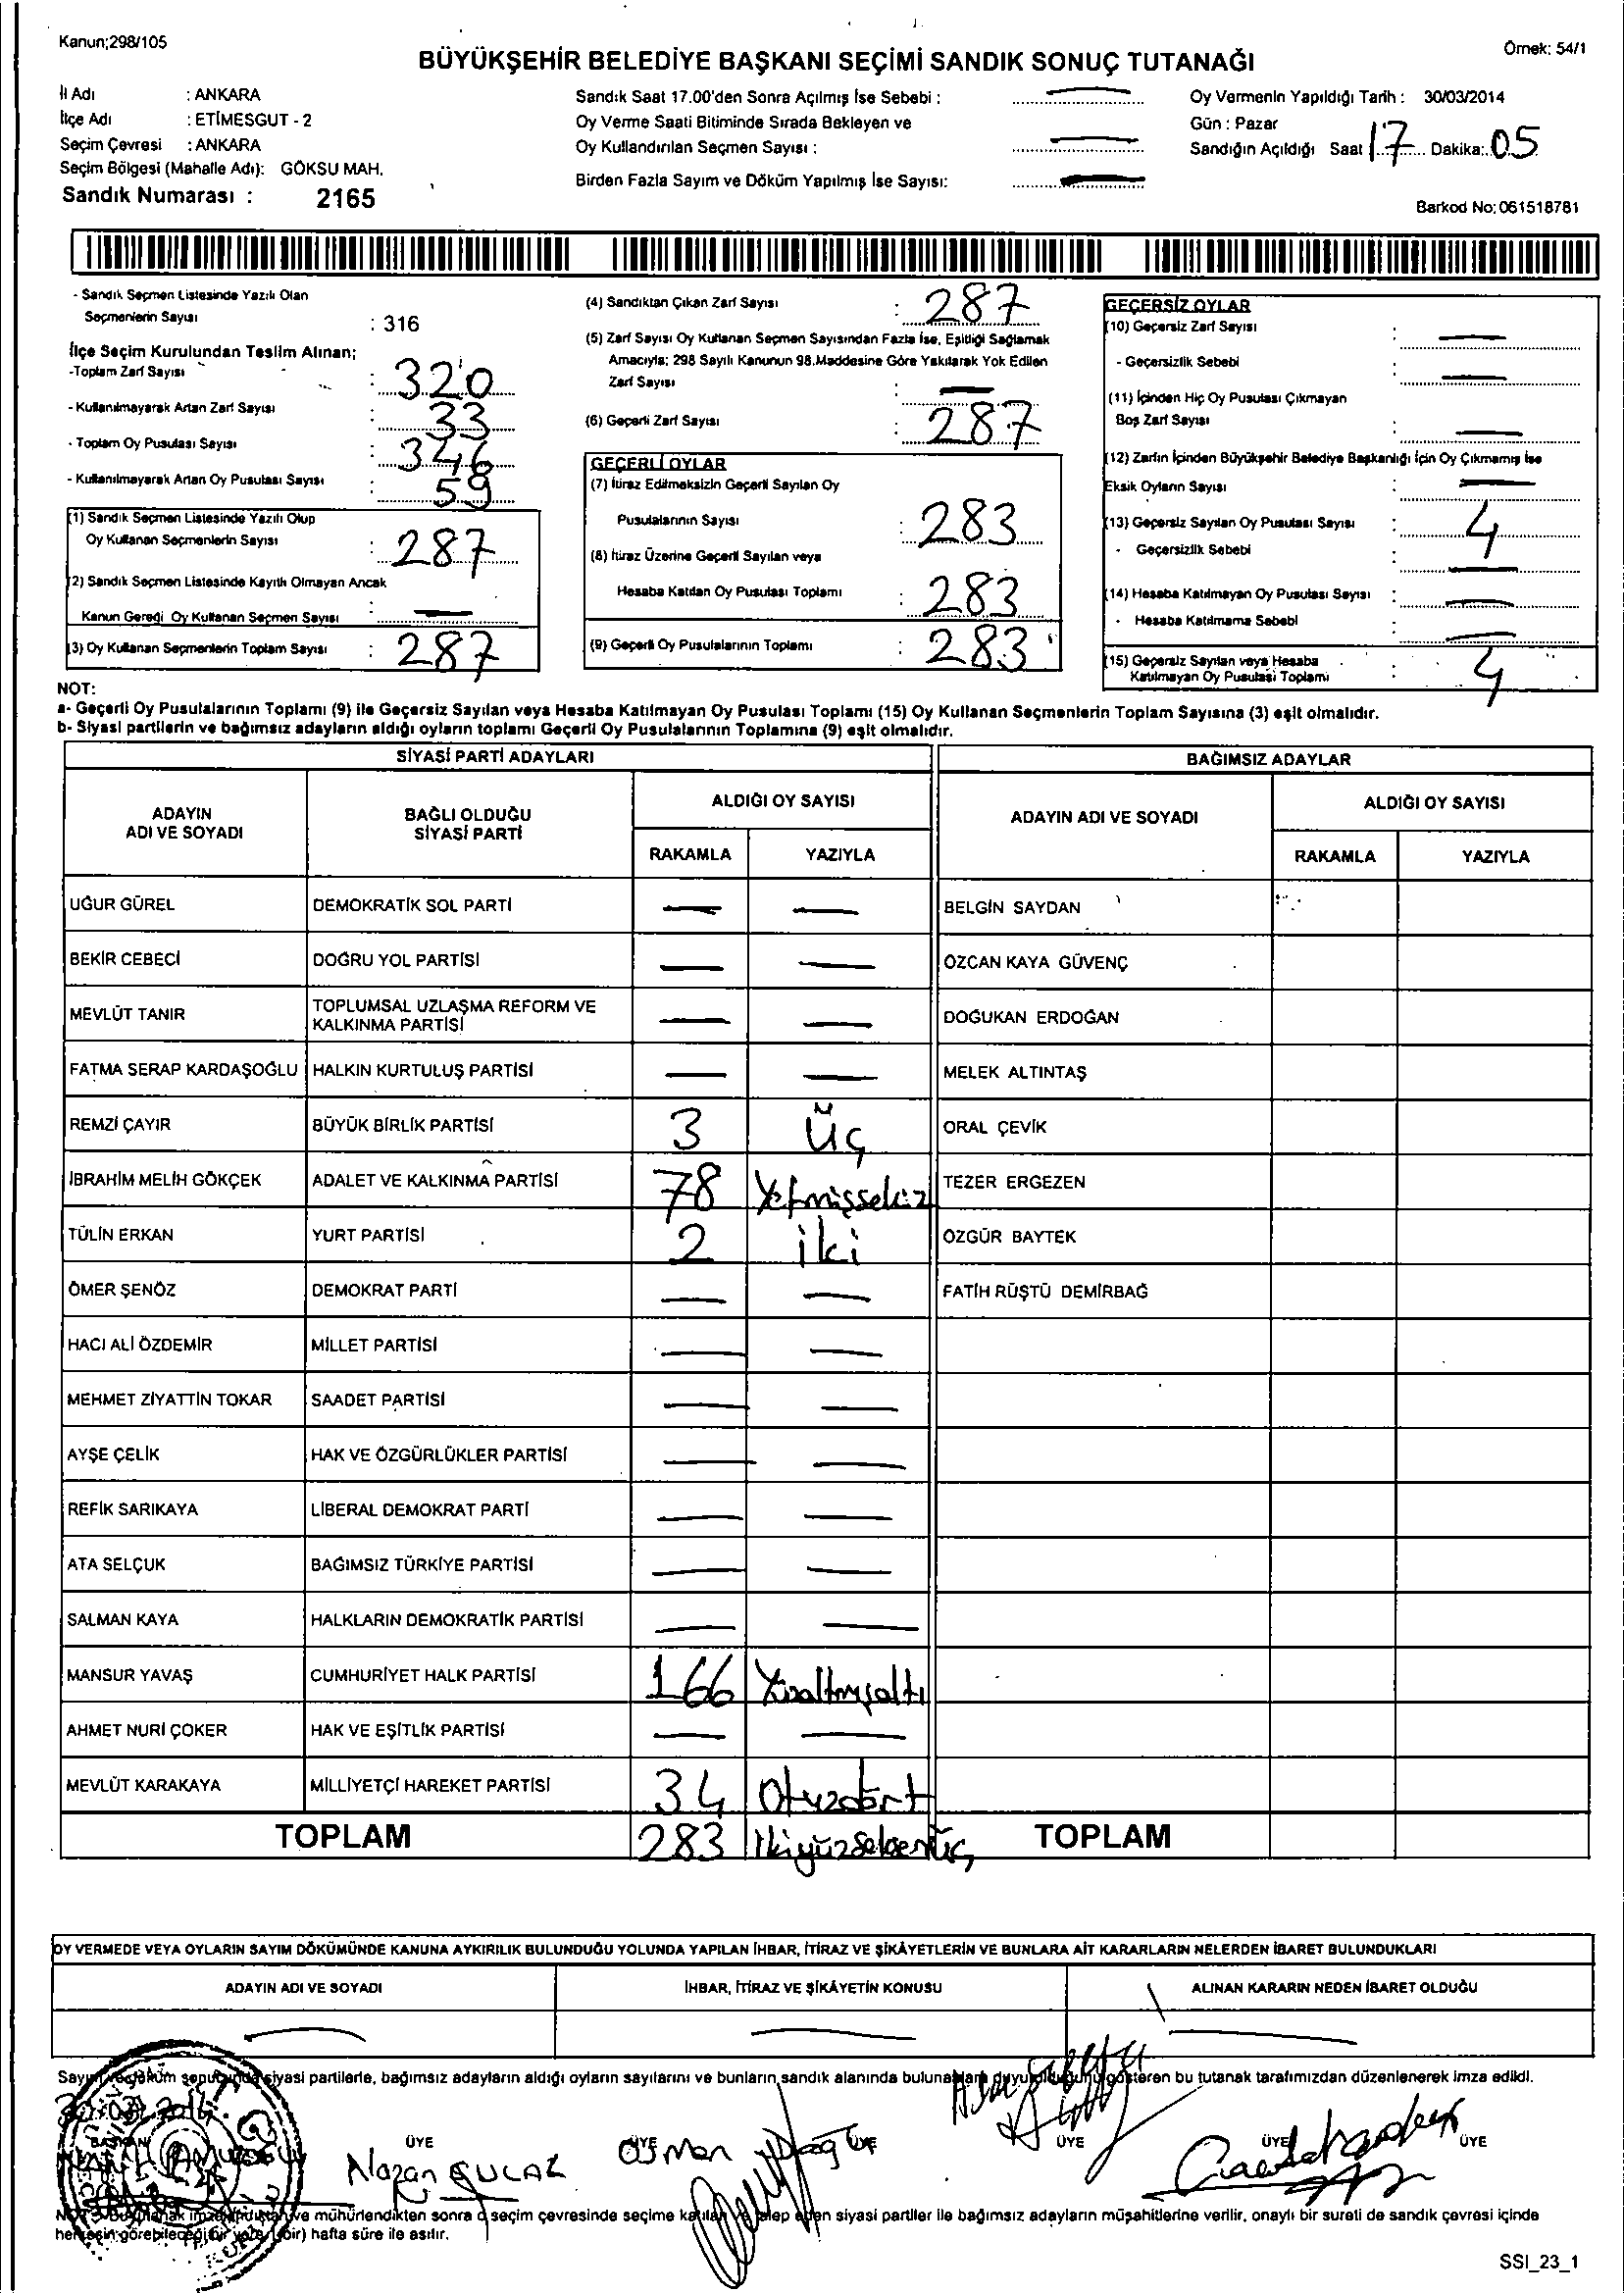 Kanun;298/105
Örnek: 54/1
BÜYÜKŞEHİR BELEDİYE BAŞKANI SEÇİMİ SANDIK SONUÇ TUTANAĞI
İl Adı : ANKARA
İlçe Adı : ETİMESGUT - 2
Seçim Çevresi : ANKARA
Seçim Bölgesi (Mahalle Adı): GÖKSU MAH.
Sandık Numarası : 2165
Sandık Saat 17.00'den Sonra Açılmış İse Sebebi :
Oy Verme Saati Bitiminde Sırada Bekleyen ve
Oy Kullandırılan Seçmen Sayısı :
Birden Fazla Sayım ve Döküm Yapılmış İse Sayısı:
Oy Vermenin Yapıldığı Tarih : 30/03/2014
Gün : Pazar
Sandığın Açıldığı Saat 17 Dakika: 05
Barkod No: 061518781
- Sandık Seçmen Listesinde Yazılı Olan
Seçmenlerin Sayısı : 316
İlçe Seçim Kurulundan Teslim Alınan;
-Toplam Zarf Sayısı : 320
- Kullanılmayarak Artan Zarf Sayısı : 33
- Toplam Oy Pusulası Sayısı : 346
- Kullanılmayarak Artan Oy Pusulası Sayısı : 59
(1) Sandık Seçmen Listesinde Yazılı Olup
Oy Kullanan Seçmenlerin Sayısı : 287
(2) Sandık Seçmen Listesinde Kayıtlı Olmayan Ancak
Kanun Gereği Oy Kullanan Seçmen Sayısı : —
(3) Oy Kullanan Seçmenlerin Toplam Sayısı : 287
(4) Sandıktan Çıkan Zarf Sayısı : 287
(5) Zarf Sayısı Oy Kullanan Seçmen Sayısından Fazla İse, Eşitliği Sağlamak
Amacıyla; 298 Sayılı Kanunun 98.Maddesine Göre Yakılarak Yok Edilen
Zarf Sayısı : —
(6) Geçerli Zarf Sayısı : 287
GEÇERLİ OYLAR
(7) İtiraz Edilmeksizin Geçerli Sayılan Oy
Pusulalarının Sayısı : 283
(8) İtiraz Üzerine Geçerli Sayılan veya
Hesaba Katılan Oy Pusulası Toplamı : 283
(9) Geçerli Oy Pusulalarının Toplamı : 283
GEÇERSİZ OYLAR
(10) Geçersiz Zarf Sayısı : —
- Geçersizlik Sebebi : —
(11) İçinden Hiç Oy Pusulası Çıkmayan
Boş Zarf Sayısı : —
(12) Zarfın İçinden Büyükşehir Belediye Başkanlığı İçin Oy Çıkmamış İse
Eksik Oyların Sayısı : —
(13) Geçersiz Sayılan Oy Pusulası Sayısı : 4
- Geçersizlik Sebebi : —
(14) Hesaba Katılmayan Oy Pusulası Sayısı : —
- Hesaba Katılmama Sebebi : —
(15) Geçersiz Sayılan veya Hesaba
Katılmayan Oy Pusulası Toplamı : 4
NOT:
a- Geçerli Oy Pusulalarının Toplamı (9) ile Geçersiz Sayılan veya Hesaba Katılmayan Oy Pusulası Toplamı (15) Oy Kullanan Seçmenlerin Toplam Sayısına (3) eşit olmalıdır.
b- Siyasi partilerin ve bağımsız adayların aldığı oyların toplamı Geçerli Oy Pusulalarının Toplamına (9) eşit olmalıdır.
SİYASİ PARTİ ADAYLARI
BAĞIMSIZ ADAYLAR
ADAYIN ADI VE SOYADI
BAĞLI OLDUĞU SİYASİ PARTİ
ALDIĞI OY SAYISI
RAKAMLA YAZIYLA
ADAYIN ADI VE SOYADI
ALDIĞI OY SAYISI
RAKAMLA YAZIYLA
UĞUR GÜREL DEMOKRATİK SOL PARTİ — — BELGİN SAYDAN
BEKİR CEBECİ DOĞRU YOL PARTİSİ — — ÖZCAN KAYA GÜVENÇ
MEVLÜT TANIR TOPLUMSAL UZLAŞMA REFORM VE KALKINMA PARTİSİ — — DOĞUKAN ERDOĞAN
FATMA SERAP KARDAŞOĞLU HALKIN KURTULUŞ PARTİSİ — — MELEK ALTINTAŞ
REMZİ ÇAYIR BÜYÜK BİRLİK PARTİSİ 3 Üç ORAL ÇEVİK
İBRAHİM MELİH GÖKÇEK ADALET VE KALKINMA PARTİSİ 78 Yetmişsekiz TEZER ERGEZEN
TÜLİN ERKAN YURT PARTİSİ 2 iki ÖZGÜR BAYTEK
ÖMER ŞENÖZ DEMOKRAT PARTİ — — FATİH RÜŞTÜ DEMİRBAĞ
HACI ALİ ÖZDEMİR MİLLET PARTİSİ — —
MEHMET ZİYATTİN TOKAR SAADET PARTİSİ — —
AYŞE ÇELİK HAK VE ÖZGÜRLÜKLER PARTİSİ — —
REFİK SARIKAYA LİBERAL DEMOKRAT PARTİ — —
ATA SELÇUK BAĞIMSIZ TÜRKİYE PARTİSİ — —
SALMAN KAYA HALKLARIN DEMOKRATİK PARTİSİ — —
MANSUR YAVAŞ CUMHURİYET HALK PARTİSİ 166 Yüzaltmışaltı
AHMET NURİ ÇOKER HAK VE EŞİTLİK PARTİSİ — —
MEVLÜT KARAKAYA MİLLİYETÇİ HAREKET PARTİSİ 34 Otuzdört
TOPLAM 283 İkiyüzseksenüç TOPLAM
OY VERMEDE VEYA OYLARIN SAYIM DÖKÜMÜNDE KANUNA AYKIRILIK BULUNDUĞU YOLUNDA YAPILAN İHBAR, İTİRAZ VE ŞİKÂYETLERİN VE BUNLARA AİT KARARLARIN NELERDEN İBARET BULUNDUKLARI
ADAYIN ADI VE SOYADI İHBAR, İTİRAZ VE ŞİKÂYETİN KONUSU ALINAN KARARIN NEDEN İBARET OLDUĞU
Sayım ve döküm sonucunda siyasi partilerle, bağımsız adayların aldığı oyların sayılarını ve bunların sandık alanında bulunanlara duyurulduğunu gösteren bu tutanak tarafımızdan düzenlenerek imza edildi.
30.03.2014
BAŞKAN ÜYE ÜYE ÜYE ÜYE ÜYE ÜYE
Nazan
Osman
NOT: Bu tutanak imzalandıktan ve mühürlendikten sonra o seçim çevresinde seçime katılan ve talep eden siyasi partiler ile bağımsız adayların müşahitlerine verilir, onaylı bir sureti de sandık çevresi içinde
herkesin görebileceği bir yere 1 (bir) hafta süre ile asılır.
SSI_23_1